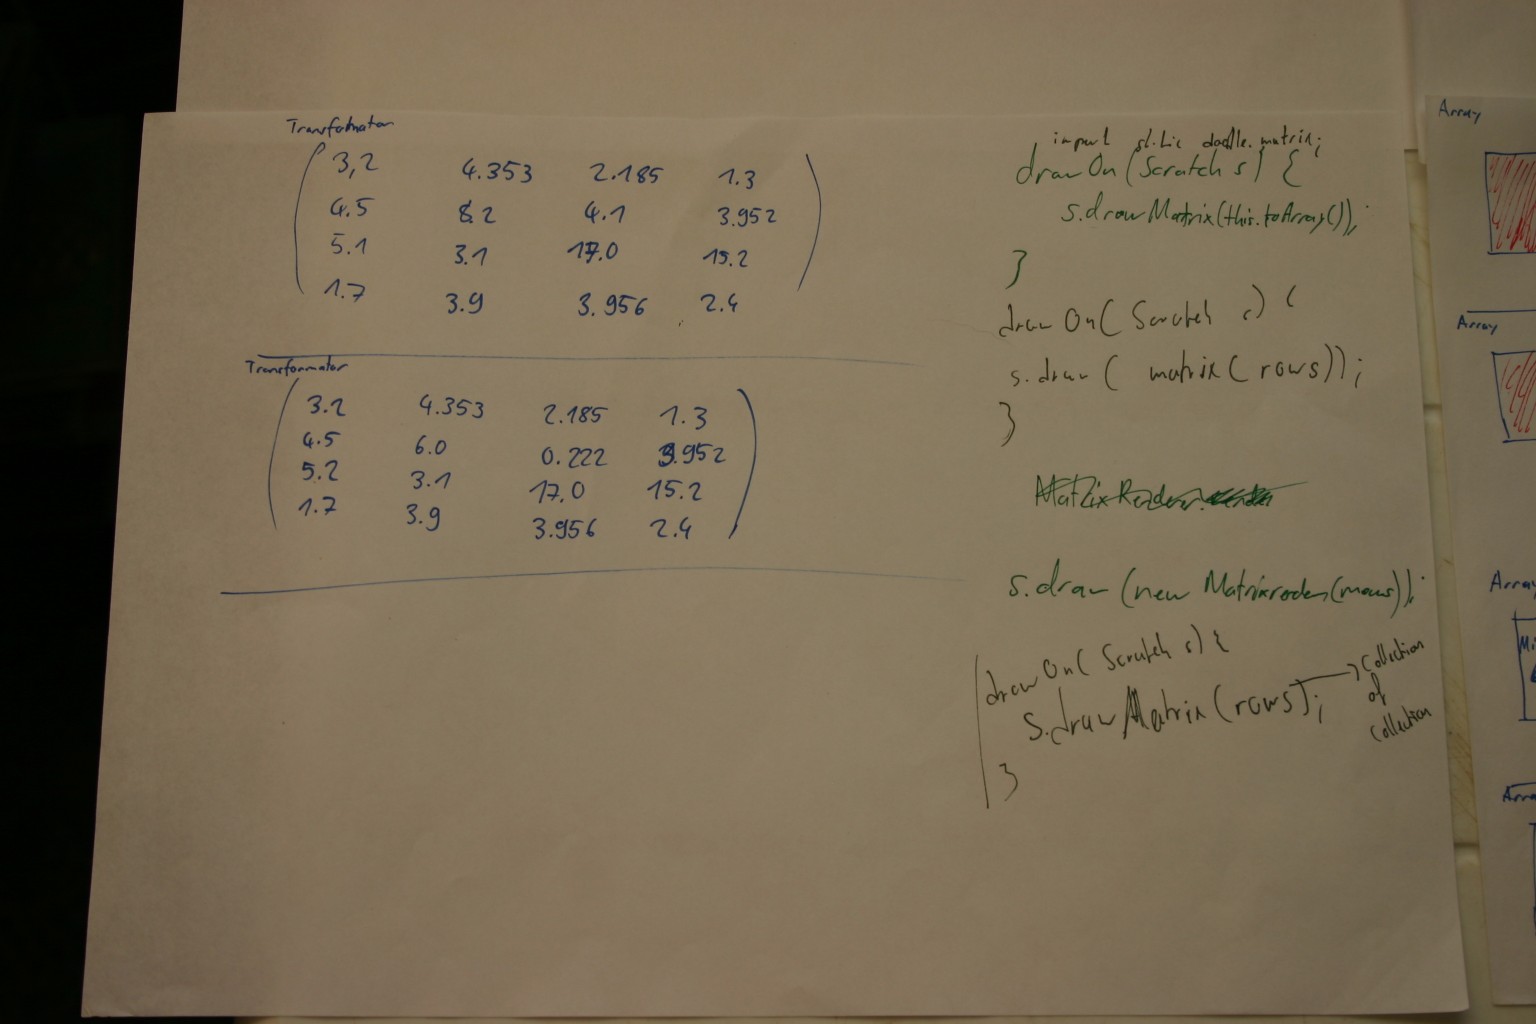 Transformator
3,2 4.353 2.185 1.3
4.5 8.2 4.1 3.952
5.1 3.1 17.0 15.2
1.7 3.9 3.956 2.4
Transformator
3.2 4.353 2.185 1.3
4.5 6.0 0.222 3.952
5.2 3.1 17.0 15.2
1.7 3.9 3.956 2.4
import static doodle.matrix;
drawOn(Scratch s) {
s.drawMatrix(this.toArray());
}
drawOn( Scratch s) {
s.draw( matrix( rows));
}
s.draw(new
drawOn( Scratch s) {
s.drawMatrix(rows);
}
collection
of
collection
Array
Array
Array